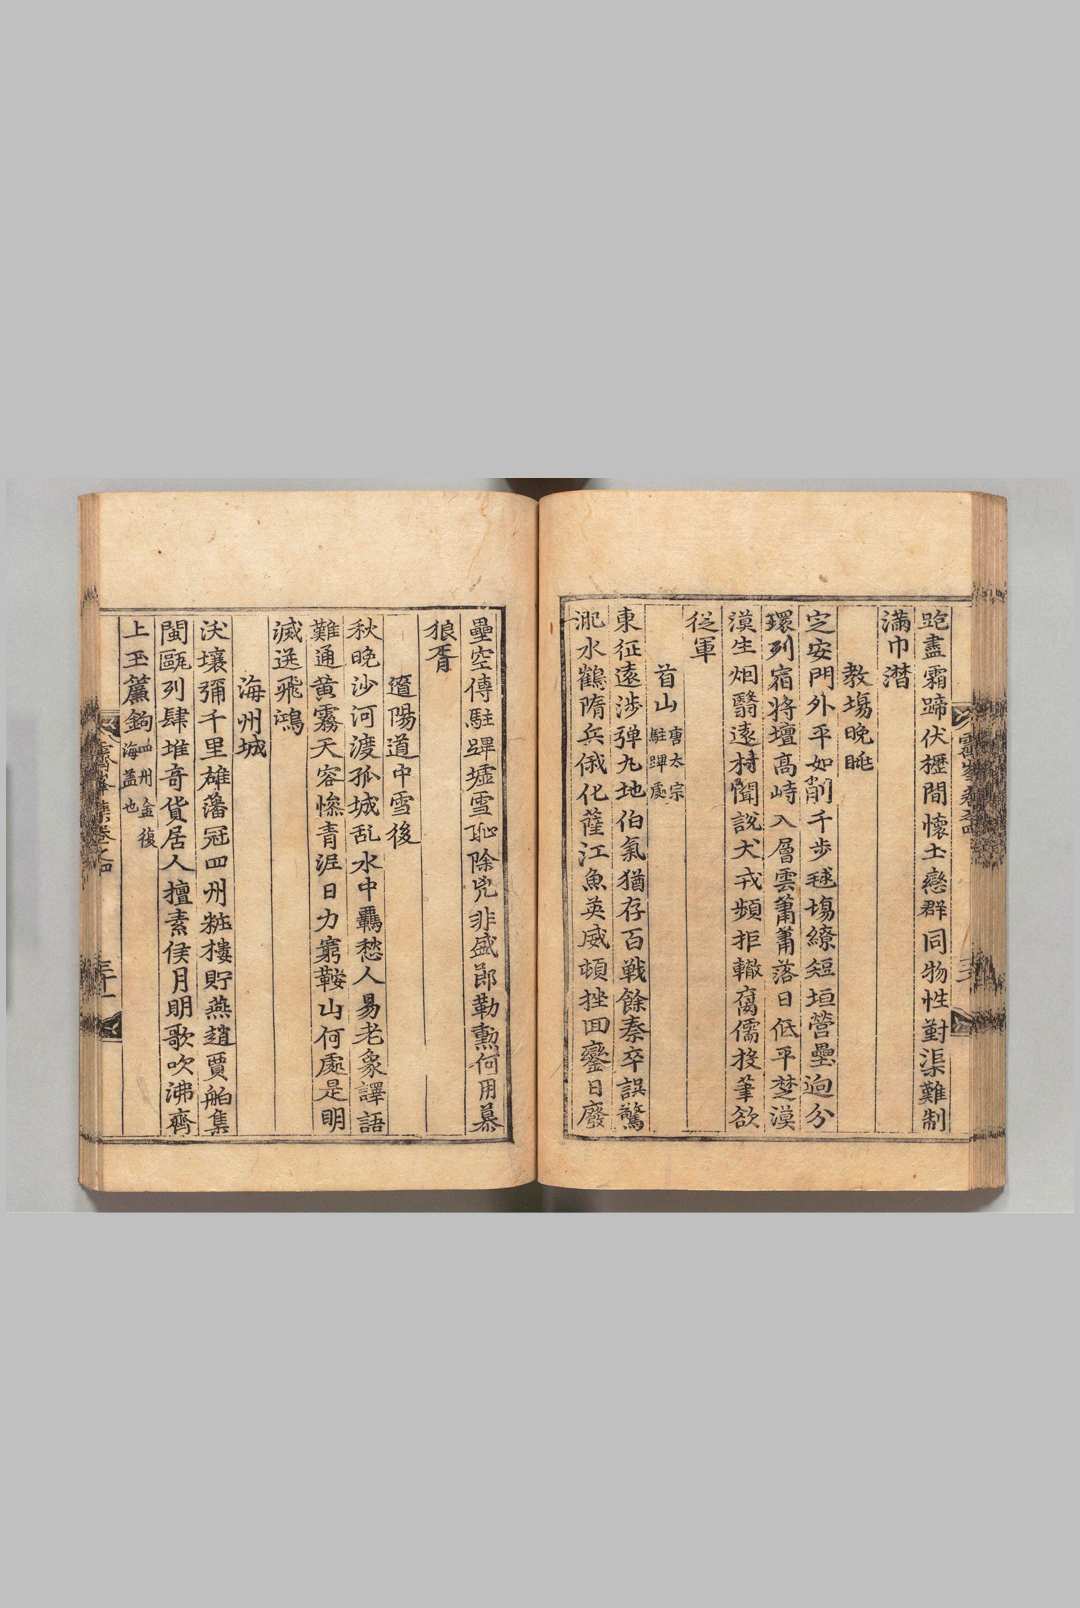 跑盡霜蹄伏櫪間懷土戀群同物性對渠難制
滿巾潜
教場晚眺
定安門外平如削千步毬場繚短垣營壘逈分
環列宿將壇高峙入層雲簫蕭落日低平楚漠
漠生烟翳遠村聞說犬戎頻拒轍腐儒投筆欲
從軍
首山唐太宗駐蹕處
東征遠涉弾丸地伯氣猶存百戦餘秦卒誤驚
淝水鶴隋兵俄化薩江魚英威頓挫回鑾日廢
壘空傳駐蹕墟雪耻除兇非盛節勒勲何用慕
狼胥
遼陽道中雪後
秋晚沙河渡孤城乱水中羈愁人易老象譯語
難通黄霧天容慘青泥日力窮鞍山何處是明
滅送飛鴻
海州城
沃壤彌千里雄藩冠四州粧樓貯燕趙賈舶集
閩甌列肆堆奇貨居人擅素侯月明歌吹沸齊
上玉簾鉤四州金復海盖也